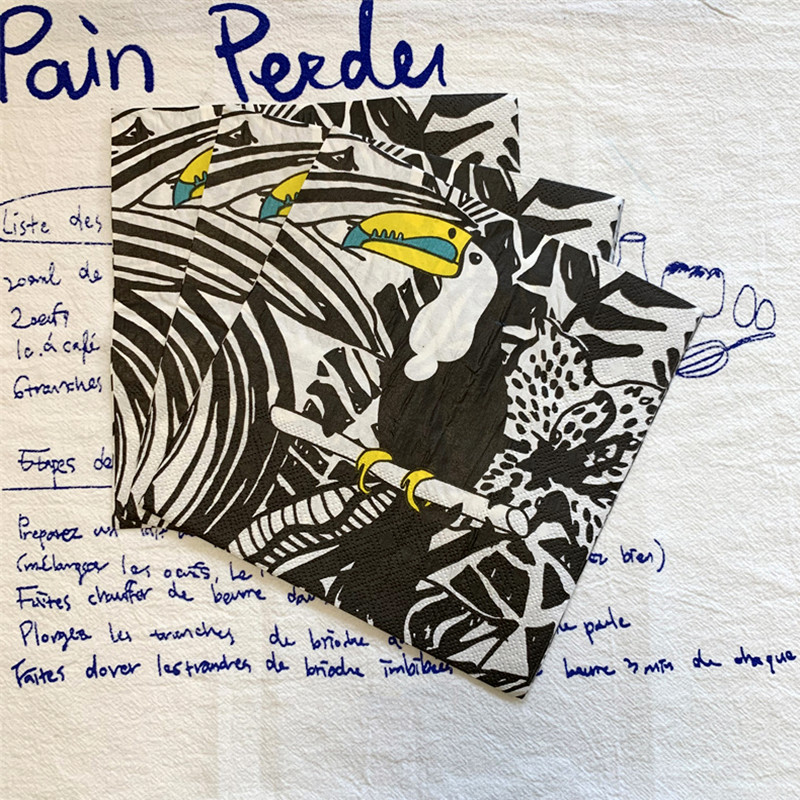 Pain Perdu
Liste des
200ml de
2 oeufs
1c. à café
6 tranches
Etapes de
Preparez un lait
(mélanger les oeufs, Le bien)
Faites chauffer de beurre
Plongez les tranches de brioche
Faites dorer les tranches de brioche imbibées beurre 3 min de chaque